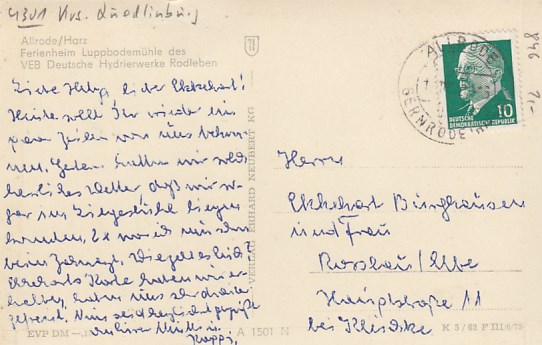 4301 Krs. Quedlinburg
Allrode/Harz
Ferienheim Luppbodemühle des
VEB Deutsche Hydrierwerke Rodleben
Liebe Helga, lieber Ekkehart!
Heute sollt Ihr wieder ein
paar Zeilen von uns bekom-
men. Gestern hatten wir solch
herrliches Wetter daß wir so-
gar im Liegestühle liegen
konnten.
beim Zahnarzt. Wie geht es Euch?
Ekkeharts Karte haben wir er-
halten, haben uns sehr darüber
gefreut. Nun seid herzlich gegrüßt
von Eurer Mutti u.
Pappi.
VERLAG ERHARD NEUBERT KG
ALLRODE
BERNRODE
DEUTSCHE
DEMOKRATISCHE REPUBLIK
10
846
Herrn
Ekkehart Burghausen
und Frau
Rosslau/Elbe
Hauptstraße 11
bei Klischke
EVP DM
A 1501 N
K 3/62 F III